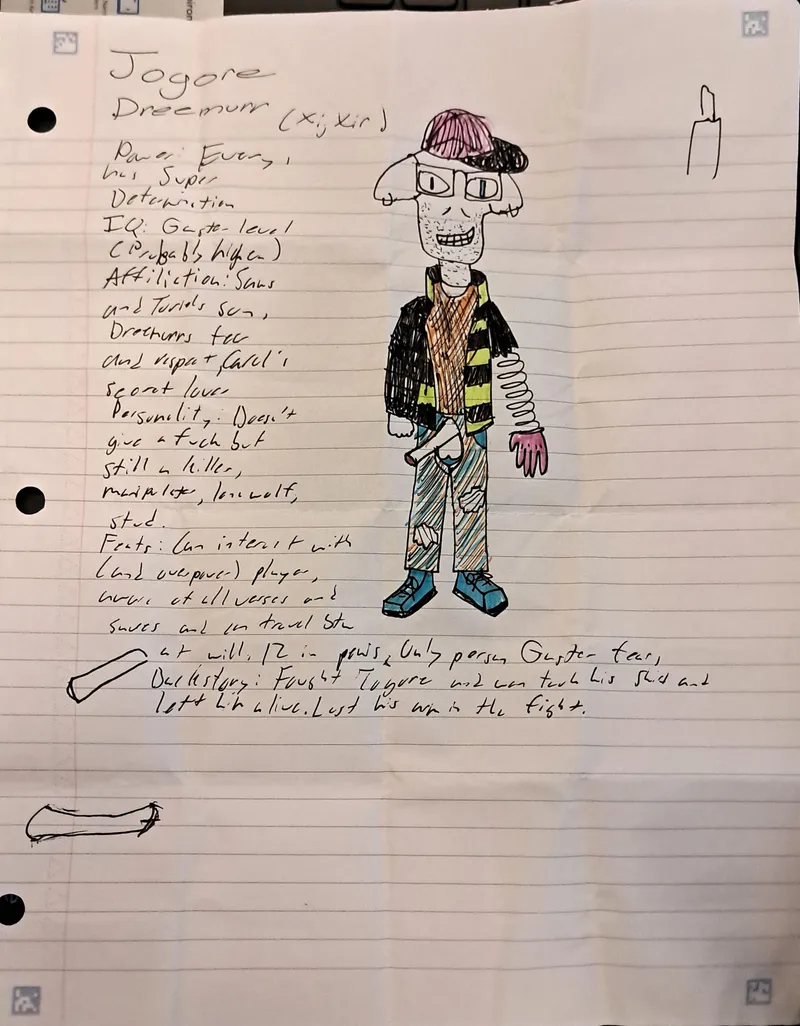 Jogore
Dreemurr (xi, xir)
Power: Every,
has Super
Determination
IQ: Gaster level
(Probably higher)
Affiliation: Sans
and Toriels son,
Dreemurrs fear
and respect, Carol's
secret lover
Personality: Doesn't
give a fuck but
still a killer,
manipulator, lone wolf,
stud.
Feats: Can interact with
(and overpower) player,
aware of all verses and
saves and can travel btw
at will. 12 in penis, Only person Gaster fears,
Backstory: Fought Jogore and won took his shirt and
left him alive. Lost his arm in the fight.